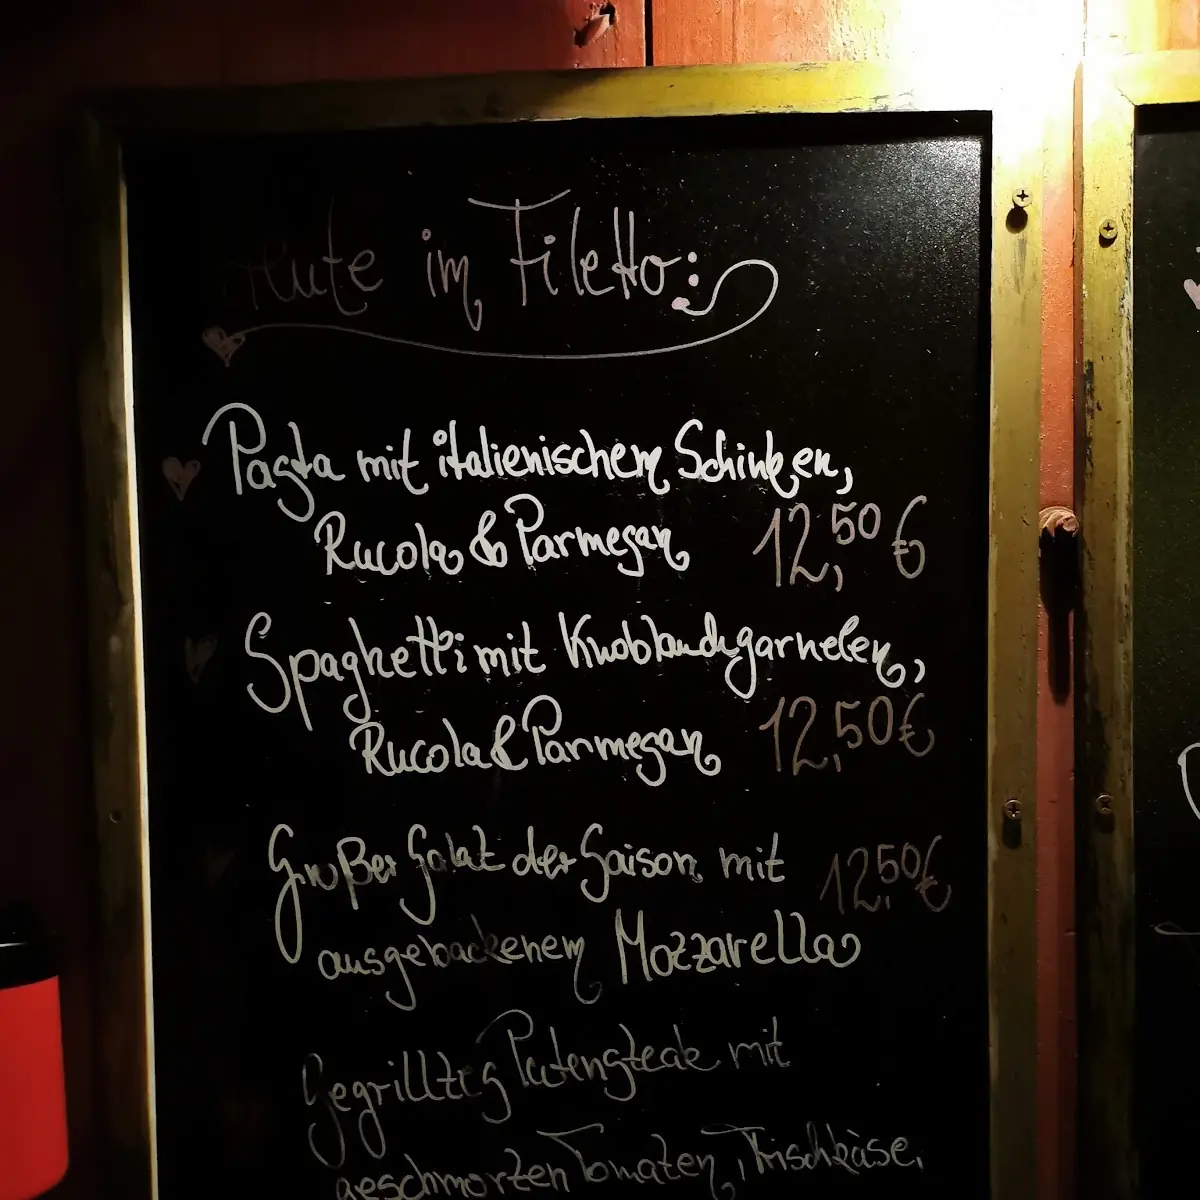 Heute im Filetto:
Pasta mit italienischem Schinken,
Rucola & Parmegan 12,50 €
Spaghetti mit Knoblauchgarnelen,
Rucola & Parmegan 12,50 €
Großer Salat der Saison mit 12,50 €
ausgebackenem Mozzarella
Gegrilltes Putensteak mit
geschmorten Tomaten, Frischkäse,